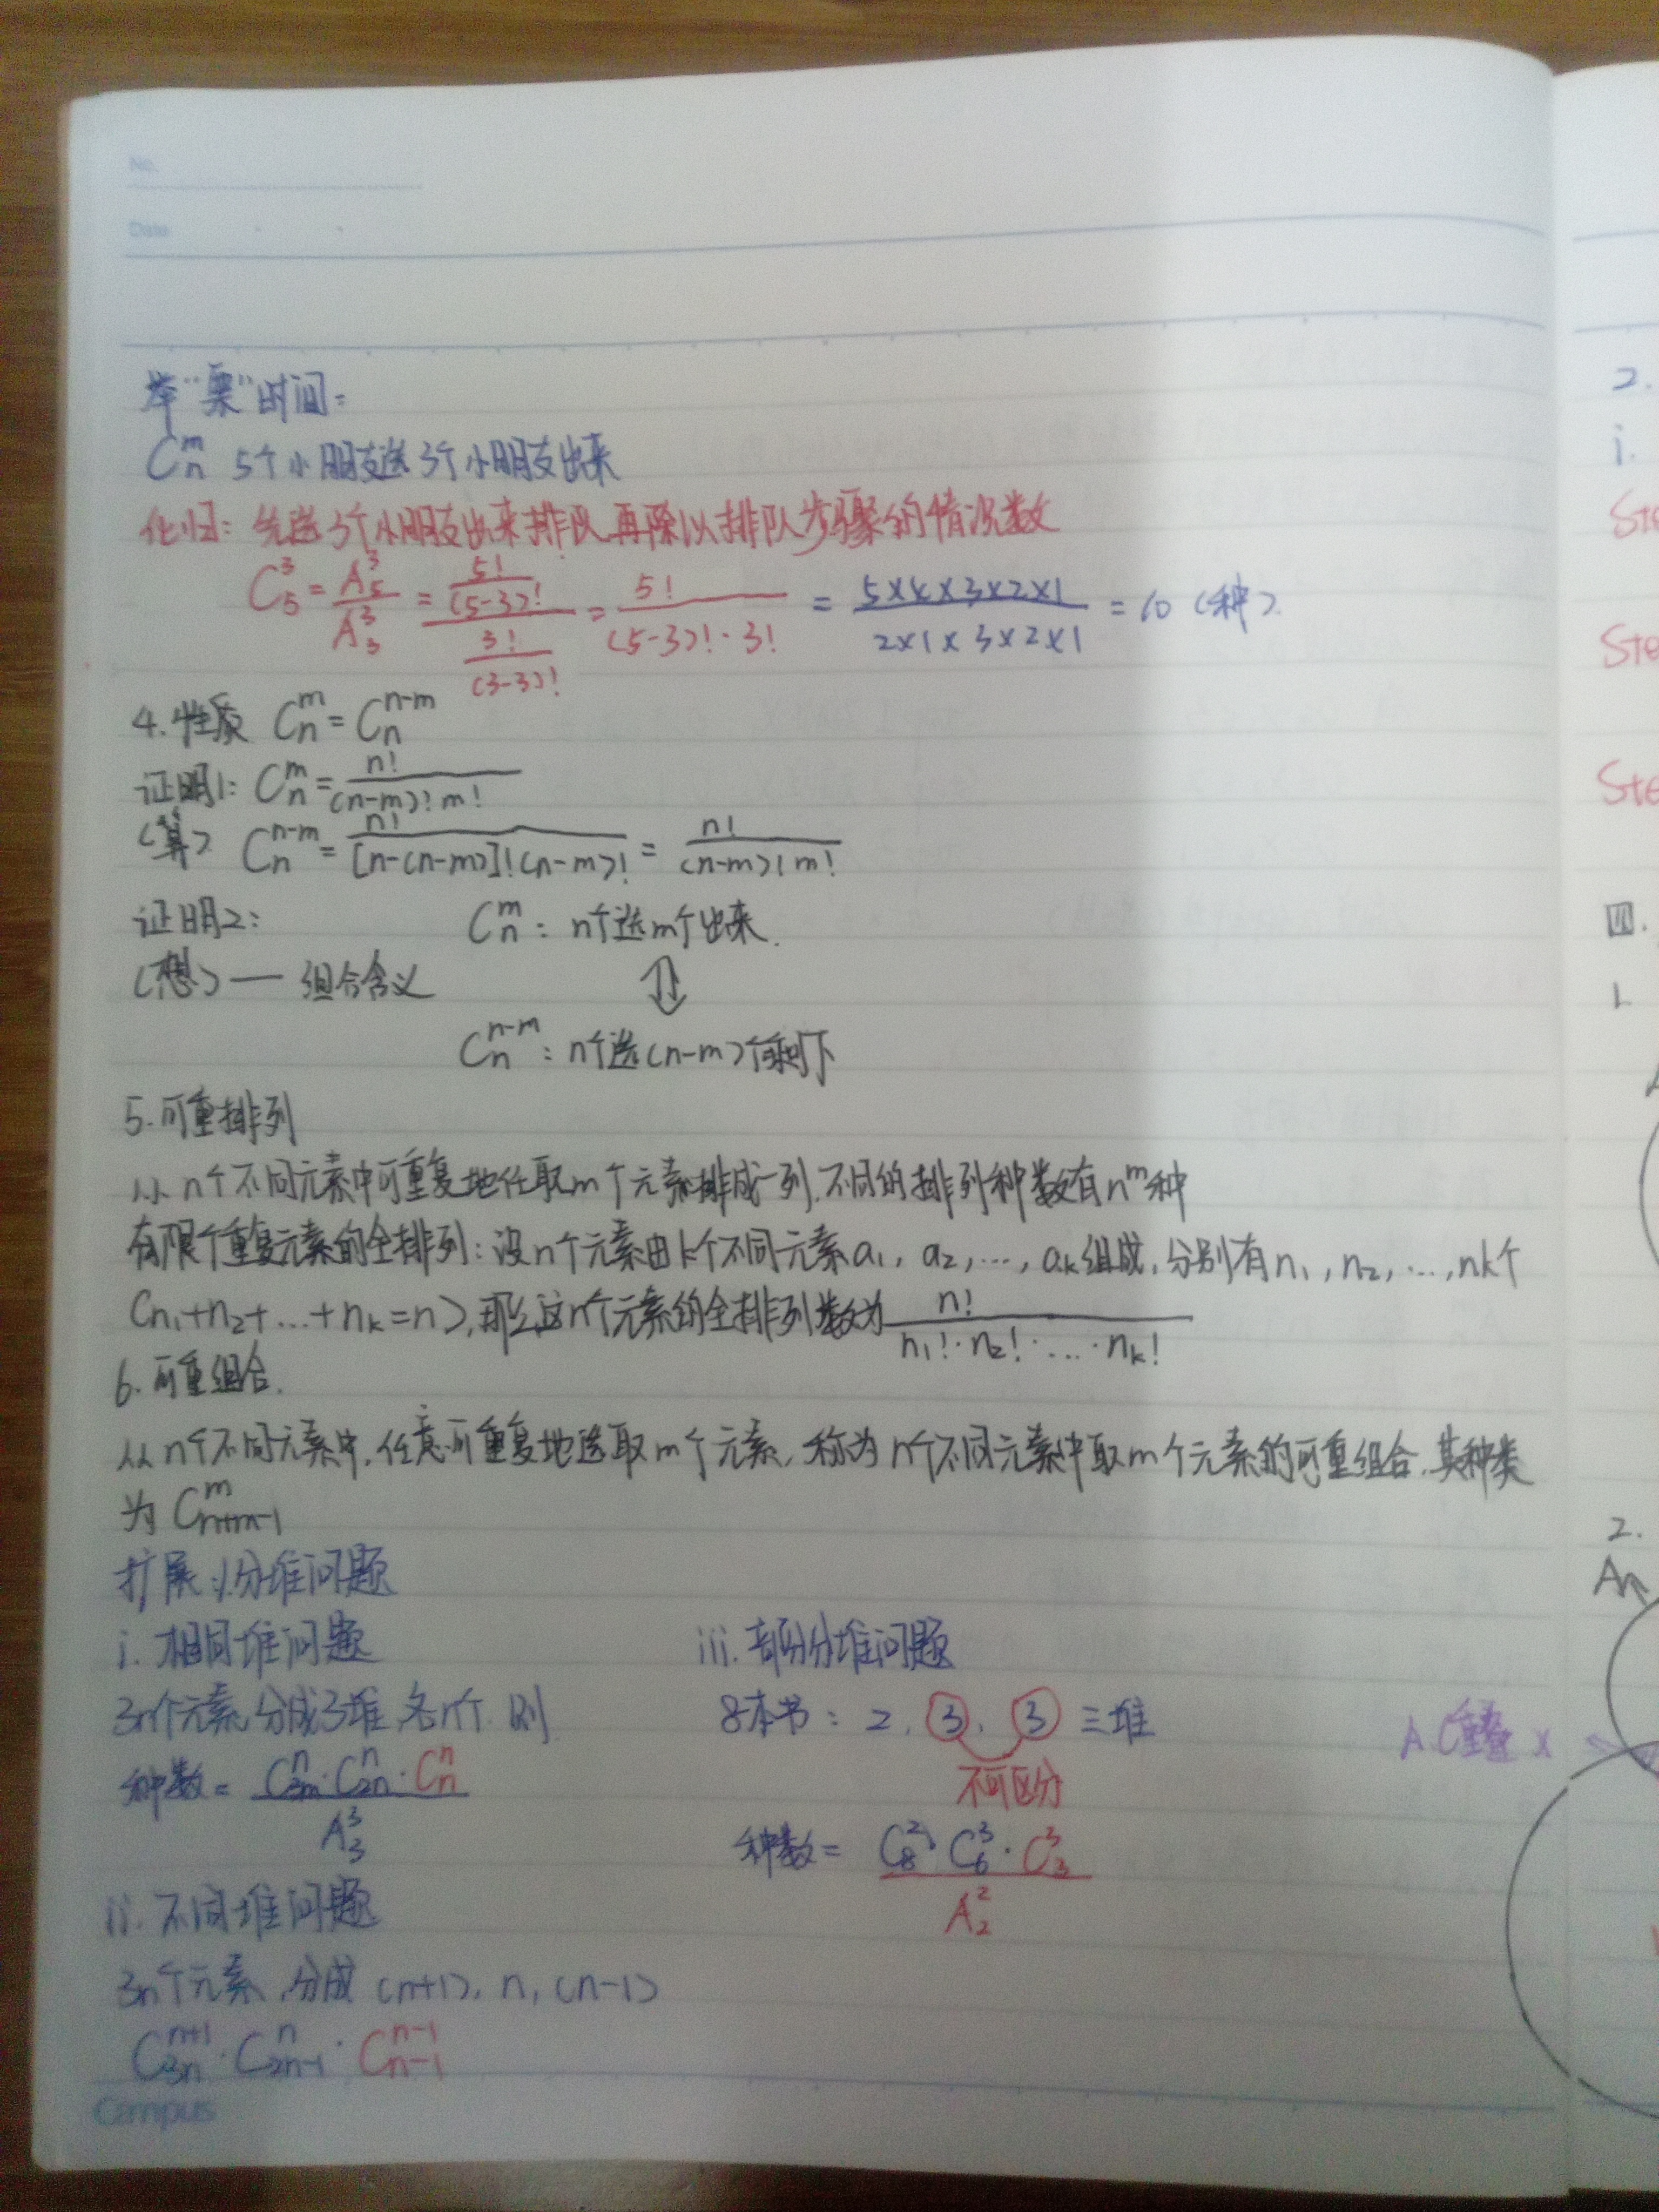 No.
Date
举“栗”时间:
C_n^m 5个小朋友选3个小朋友出来
化归: 先选3个小朋友出来排队,再除以排队步骤的情况数
C_5^3 = A_5^3 / A_3^3 = (5! / (5-3)!) / (3! / (3-3)!) = 5! / ((5-3)! · 3!) = (5×4×3×2×1) / (2×1×3×2×1) = 10 (种)
4. 性质 C_n^m = C_n^{n-m}
证明1: C_n^m = n! / ((n-m)! m!)
(算) C_n^{n-m} = n! / ([n-(n-m)]! (n-m)!) = n! / ((n-m)! m!)
证明2: C_n^m : n个选m个出来.
(想) — 组合含义 ⇕
C_n^{n-m} : n个选(n-m)个剩下
5. 可重排列
从n个不同元素中可重复地任取m个元素排成一列,不同的排列种数有n^m种
有限个重复元素的全排列: 设n个元素由k个不同元素a_1, a_2, ..., a_k组成, 分别有n_1, n_2, ..., n_k个
(n_1+n_2+...+n_k=n), 那么这n个元素的全排列数为 n! / (n_1! · n_2! · ... · n_k!)
6. 可重组合.
从n个不同元素中,任意可重复地选取m个元素,称为n个不同元素中取m个元素的可重组合,其种类
为 C_{n+m-1}^m
扩展: 1/分堆问题
i. 相同堆问题
3n个元素,分成3堆,各n个,则
种数 = (C_{3n}^n · C_{2n}^n · C_n^n) / A_3^3
ii. 不同堆问题
3n个元素,分成(n+1), n, (n-1)
C_{3n}^{n+1} · C_{2n-1}^n · C_{n-1}^{n-1}
iii. 部分分堆问题
8本书: 2, ③, ③ 三堆
不可区分
种数 = (C_8^2 · C_6^3 · C_3^3) / A_2^2
Campus
2.
i.
Ste
Ste
Ste
四.
1.
2.
A
A.C重叠 ×